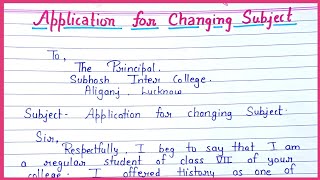 Application for Changing Subject
To,
The Principal.
Subhosh Inter College.
Aliganj, Lucknow
Subject- Application for changing Subject.
Sir,
Respectfully, I beg to say that I am
a regular student of class VII of your
college. I offered History as one of